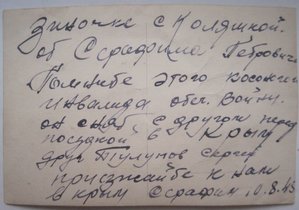 Зиночке с Коляшкой.
от Серафима Петровича
Помните этого
инвалида отеч. войны.
он снят с другом перед
поездкой в Крым
друг Тулупов Сергей
приезжайте к нам
в крым Серафим